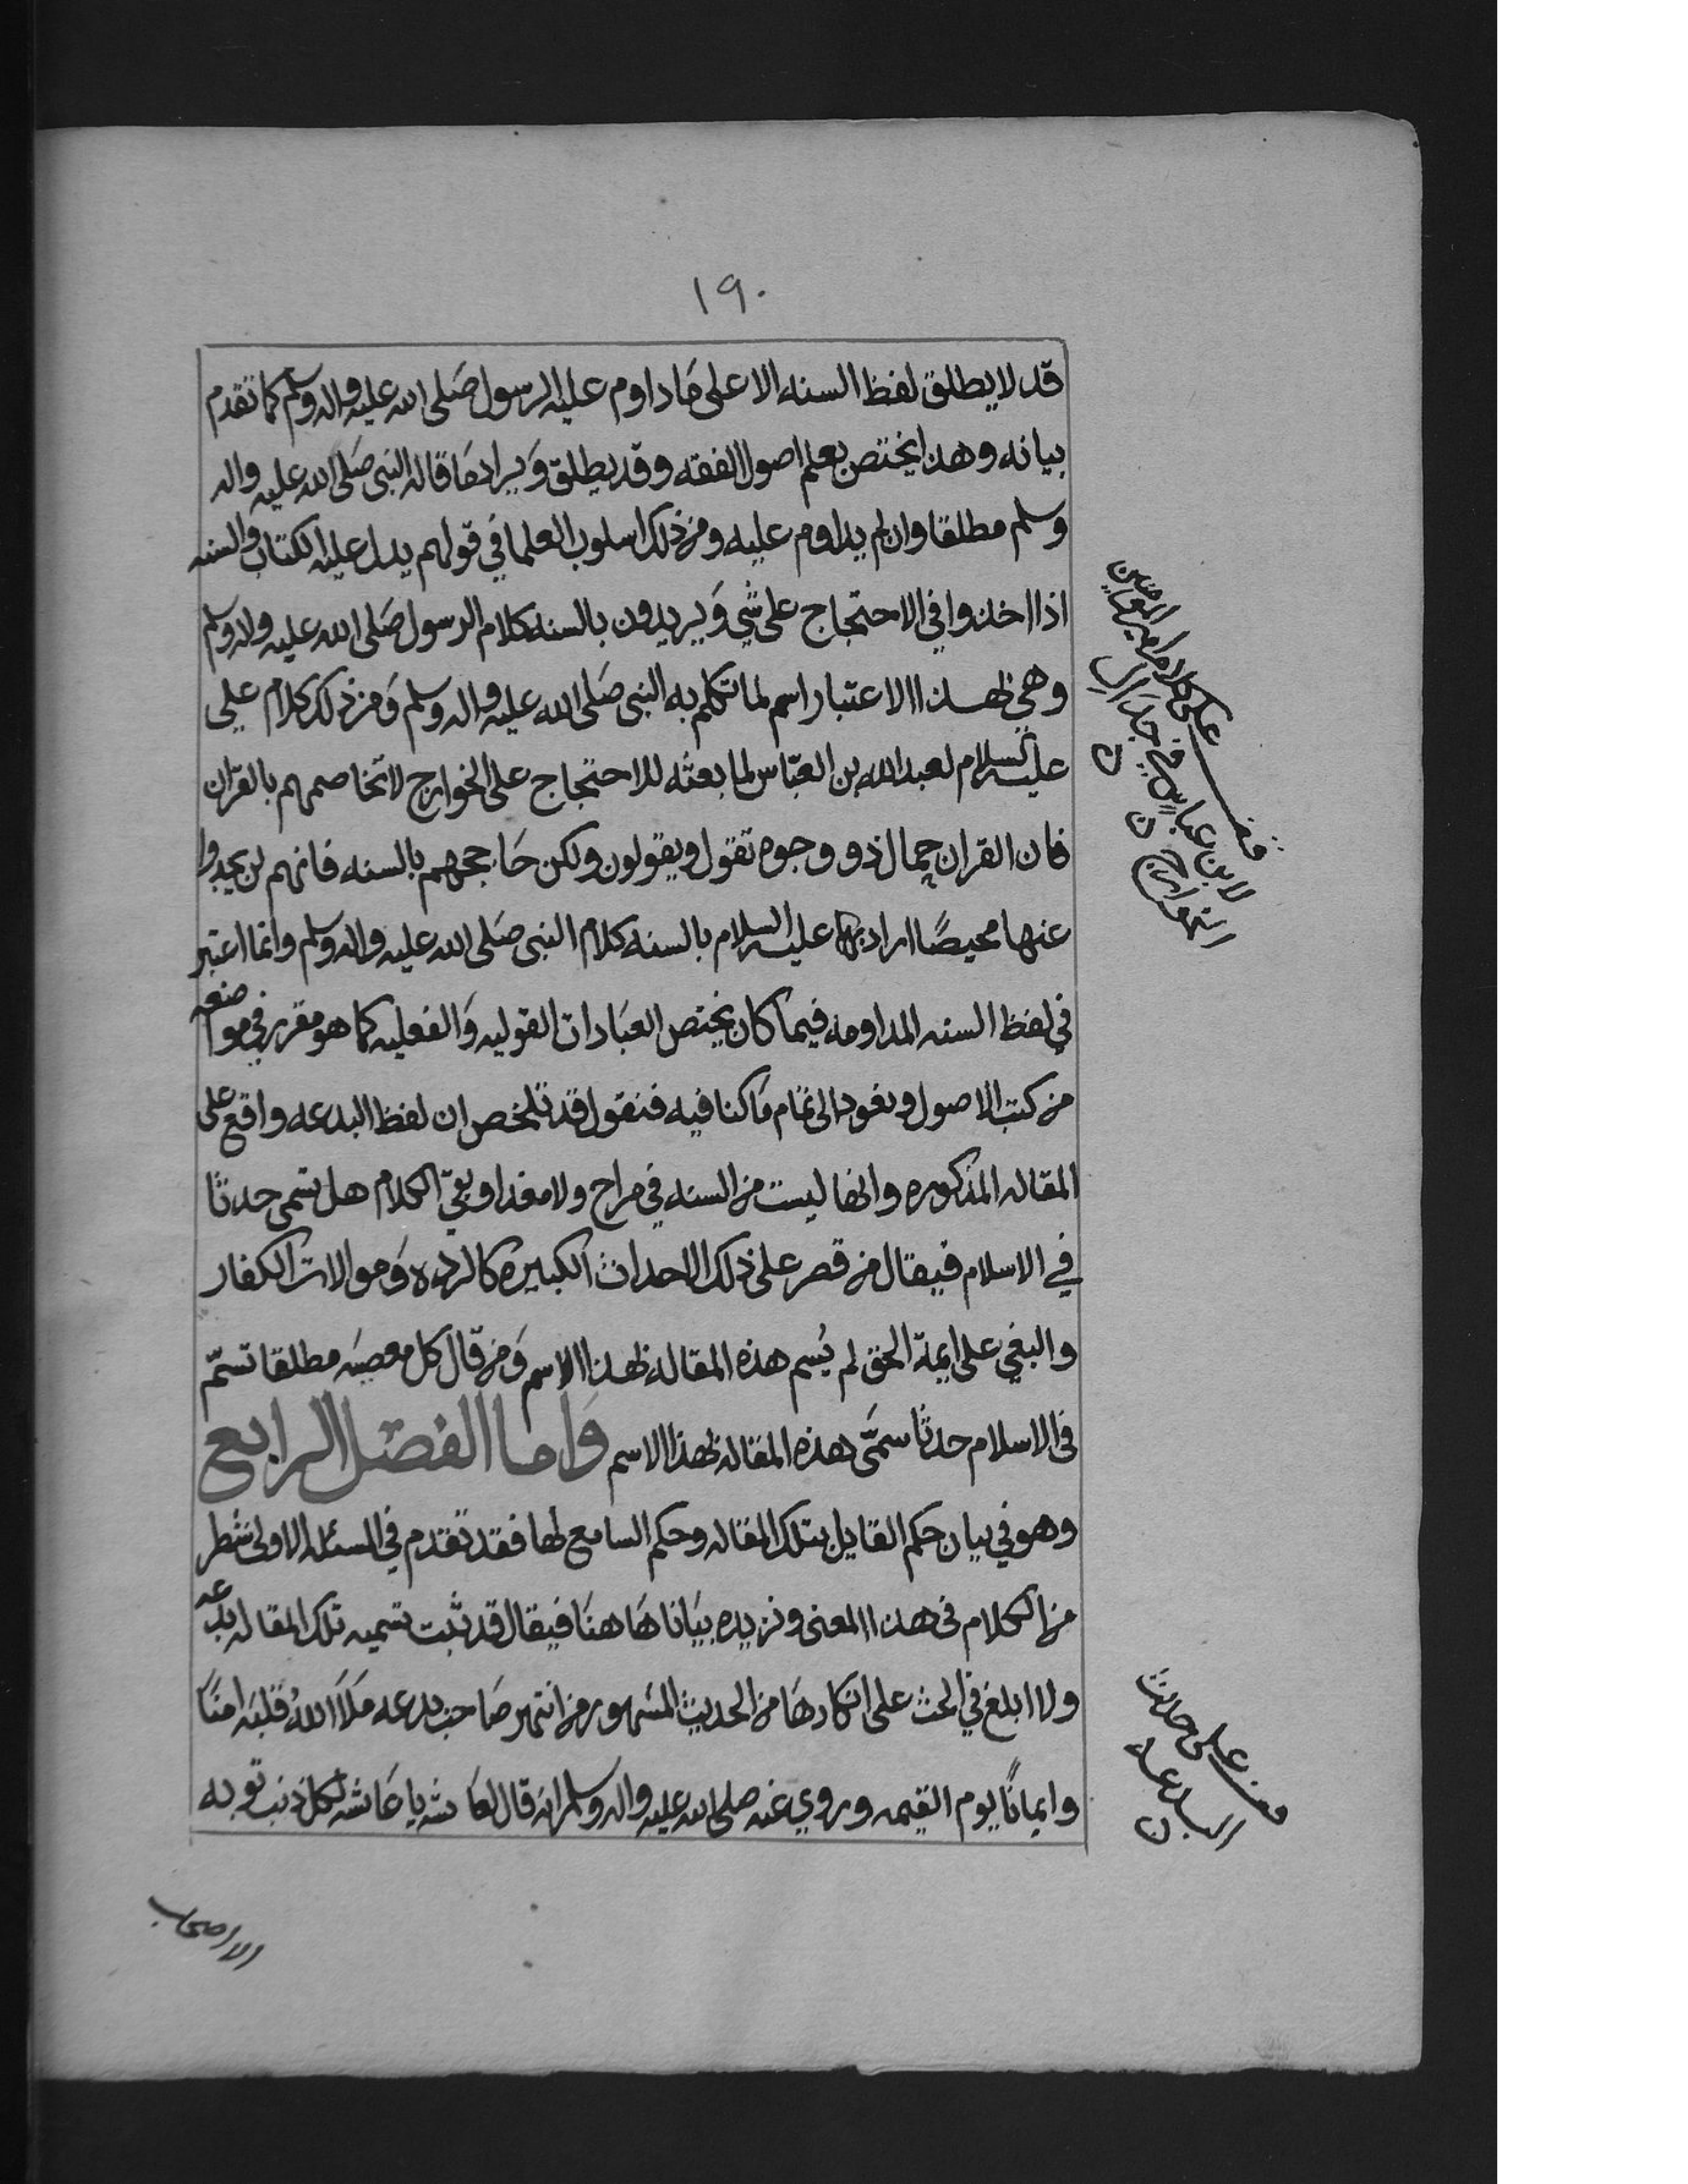 ١٩٠
قد لا يطلق لفظ السنه الا على ما داوم عليه الرسول صلى الله عليه واله وسلم كما تقدم
بيانه وهذا يختص بعلم اصول الفقه وقد يطلق ويراد ما قاله النبى صلى الله عليه واله
وسلم مطلقا وان لم يداوم عليه ومن ذلك اسلوب العلما في قولهم يدل عليه الكتاب والسنه
اذا اخذوا في الاحتجاج على شي ويريدون بالسنه كلام الرسول صلى الله عليه واله وسلم
وهي بهذا الاعتبار اسم لما تكلم به النبى صلى الله عليه واله وسلم ومن ذلك كلام علي
عليه السلام لعبد الله بن العباس لما بعثه للاحتجاج على الخوارج لا تخاصمهم بالقران
فان القران حمال ذو وجوه تقول ويقولون ولكن حاججهم بالسنه فانهم لن يجدوا
عنها محيصًا اراد بها عليه السلام بالسنه كلام النبى صلى الله عليه واله وسلم وانما اعتبر
في لفظ السنه المداومه فيما كان يختص العبادات القوليه والفعليه كما هو مقرر في مواضعه
من كتب الاصول ونعود الى تمام ما كنا فيه فنقول قد تلخص ان لفظ البدعه واقع على
المقاله المذكوره وانها ليست من السنه في مراح ولا مغدا وبقي الكلام هل تسمى حدثا
في الاسلام فيقال من قصر على ذلك الاحداث الكبيره كالرده وموالات الكفار
والبغي على ايمة الحق لم يُسم هذه المقاله بهذا الاسم ومن قال كل معصيه مطلقا تسمّ
في الاسلام حدثا سمّى هذه المقاله بهذا الاسم واما الفصل الرابع
وهو في بيان حكم القايل بتلك المقاله وحكم السامع لها فقد تقدم في المسئله الاولى شطر
من الكلام في هذا المعنى ونزيده بيانا هاهنا فيقال قد ثبت تسميه تلك المقاله بدعه
ولا ابلغ في الحث على انكارها من الحديث المشهور من انتهر صاحب بدعه ملا الله قلبه امنًا
وايمانًا يوم القيمه وروي عنه صلى الله عليه واله وسلم انه قال لعايشه يا عايشه لكل ذنب توبه
الا اصحاب
قف على كلام امير المومنين
لابن عباس في جدال
الخوارج
قف على حديث
البدعه